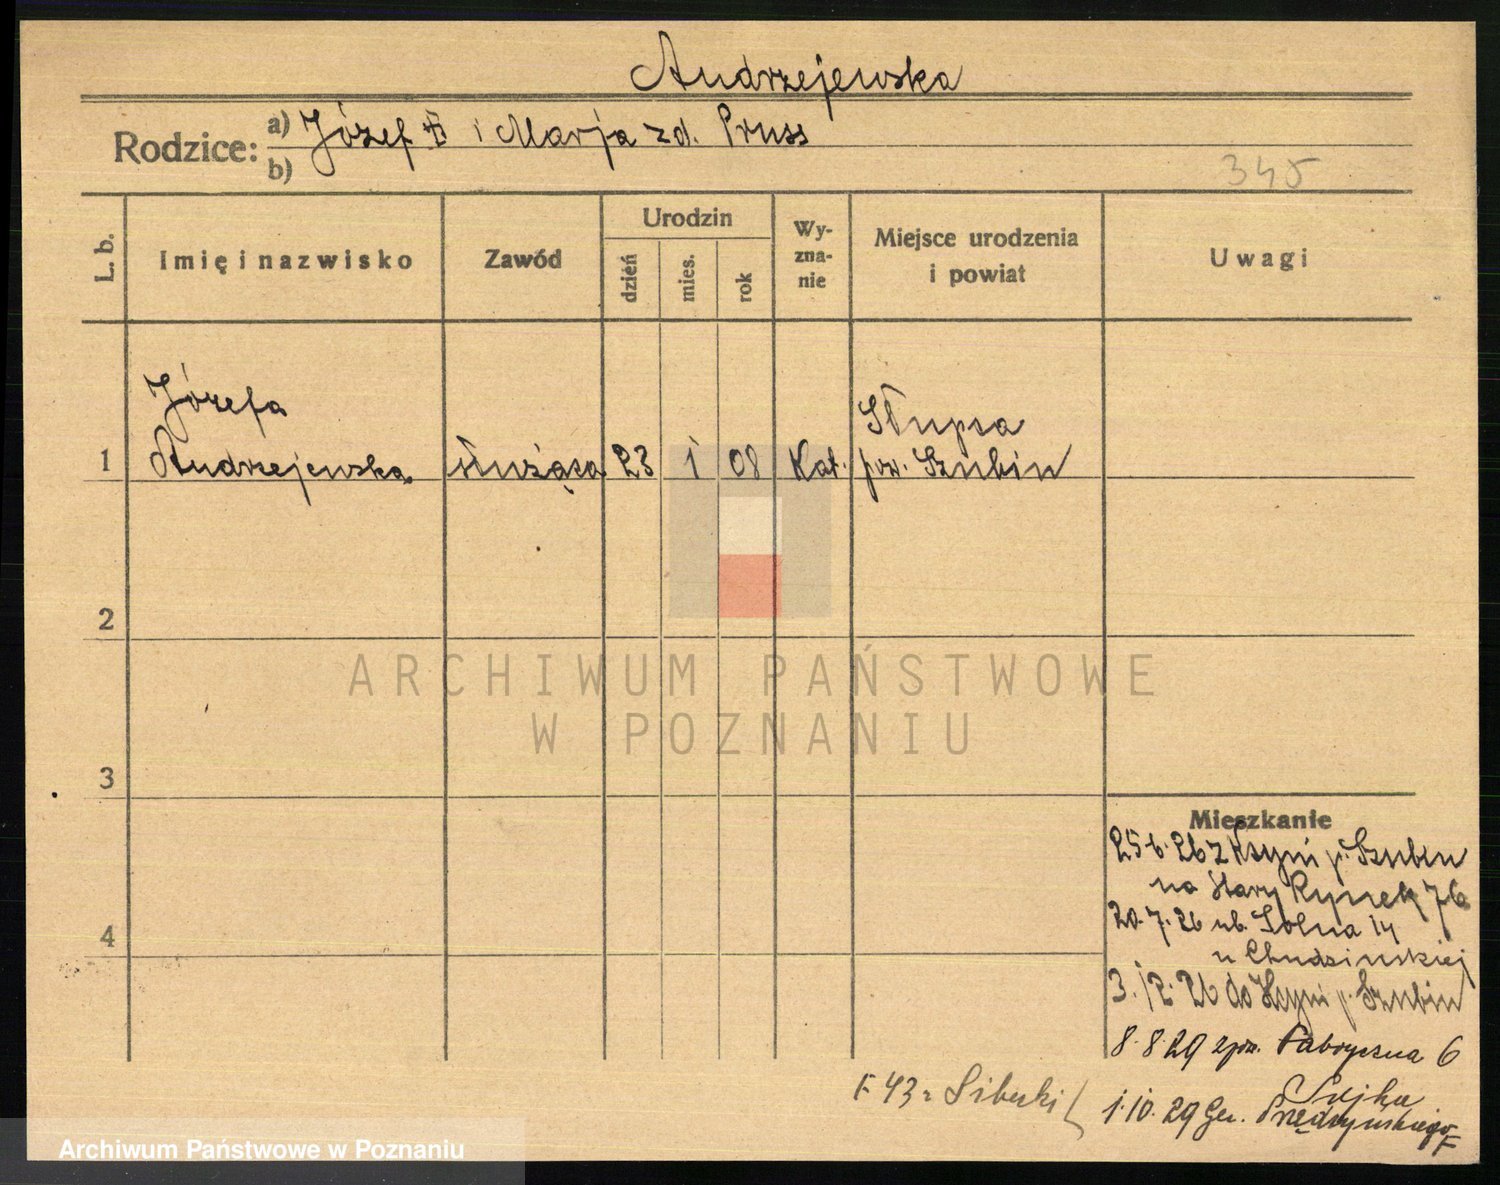 Andrzejewska
Rodzice: a) Józef i Marja zd. Pruss
b)
345
L. b. Imię i nazwisko Zawód Urodzin dzień mies. rok Wyznanie Miejsce urodzenia i powiat Uwagi
Józefa Słupsa
1 Andrzejewska służąca 23 1 08 Kat. pow. Szubin
2
ARCHIWUM PAŃSTWOWE
W POZNANIU
3
Mieszkanie
25 6. 26 z Kcyni p. Szubin
na Stary Rynek 76
20. 7. 26 ul. Solna 14
4
u Chudzinskiej
3. 12. 26 do Kcyni p. Szubin
8. 8. 29 zpow. Fabryczna 6
Sojka
F 43 1. 10. 29 Gen. Prądzyńskiego
Archiwum Państwowe w Poznaniu